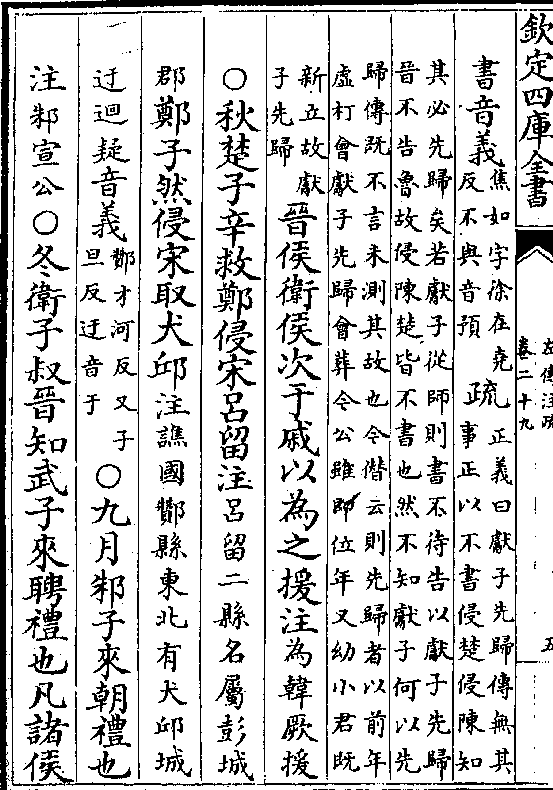 欽定四庫全書
左傳注疏
卷二十九
五
書音義
焦如字徐在堯
反不與音預
疏
正義曰獻子先歸傳無其
事正以不書侵楚侵陳知
其必先歸矣若獻子從師則書不待告以獻子先歸
晉不告魯故侵陳楚皆不書也然不知獻子何以先
歸傳既不言未測其故也今僭云則先歸者以前年
虛朾會獻子先歸會葬今公雖即位年又幼小君既
新立故獻
子先歸
晉侯衛侯次于戚以為之援注為韓厥援
○秋楚子辛救鄭侵宋呂留注呂留二縣名屬彭城
郡鄭子然侵宋取犬邱注譙國酇縣東北有犬邱城
迂迴疑音義
酇才河反又子
旦反迂音于
○九月邾子來朝禮也
注邾宣公○冬衛子叔晉知武子來聘禮也凡諸侯